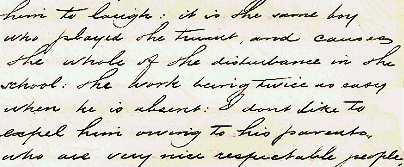 him to laugh: it is the same boy
who played the truant, and causes
the whole of the disturbance in the
school: the work being twice as easy
when he is absent: I dont like to
expel him owing to his parents,
who are very nice respectable people